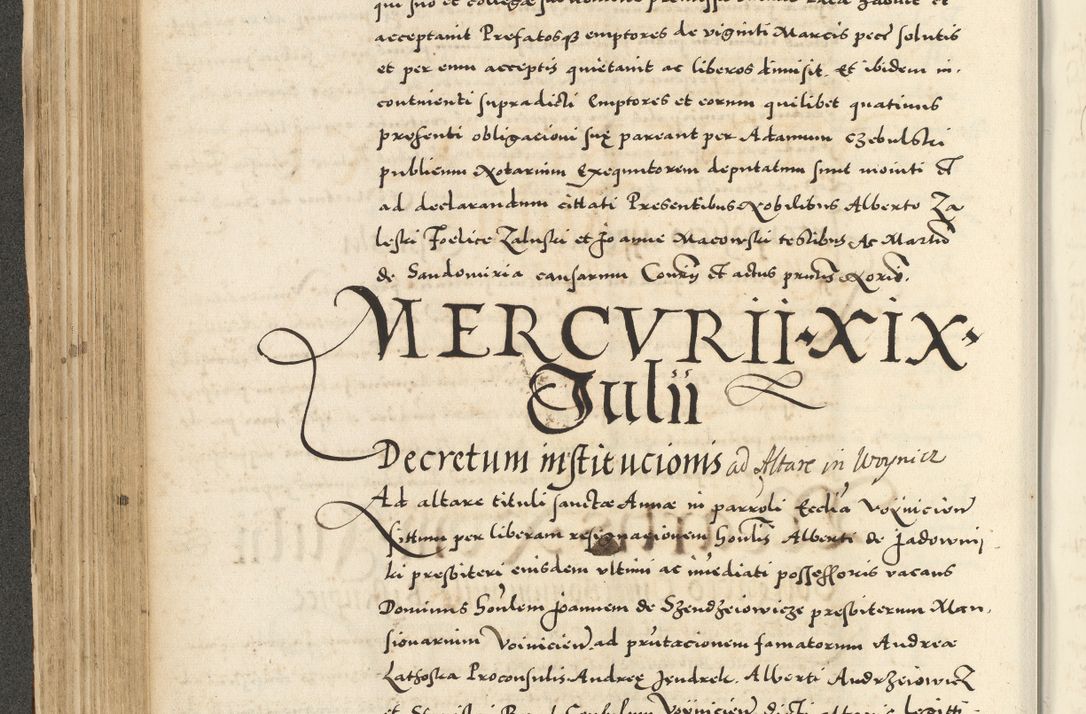 qui suo et collegae sui nomine
acceptavit Prefatosq3 emptores de viginti Marcis pecę solutis
et per eum acceptis quietavit ac liberos dimisit. Et ibidem in,
continenti supradicti Emptores et eorum quilibet quatinus
presenti obligacioni suę pareant per Adamum Czebulski
publicum Notarium Exequutorem deputatum sunt moniti Et
ad declarandum cittati Presentibus Nobilibus Alberto Za
leski Foelice Zaluski et Joanne Macowski testibus Ac Martio
de Sandomiria causarum Conry et actus prntis Norio.
MERCVRII XIX
Iulii
Decretum institucionis ad Altare in Woynicz
Ad altare tituli sanctae Annae in parroli Ecclia Voynicien
sittum per liberam resignacionem honlis Alberti de Jadowni
ki presbiteri eiusdem vltimi ac imediati possessoris vacans
Dominus honlem Joannem de Szendzeiowicze presbiterum Man,
sionarium Voinicien ad prntacionem famatorum Andreae
Lathoska Proconsulis Andreę Jendrek. Alberti Andrzeiowicz
et Consulum Voynicien dicti altaris legitti-